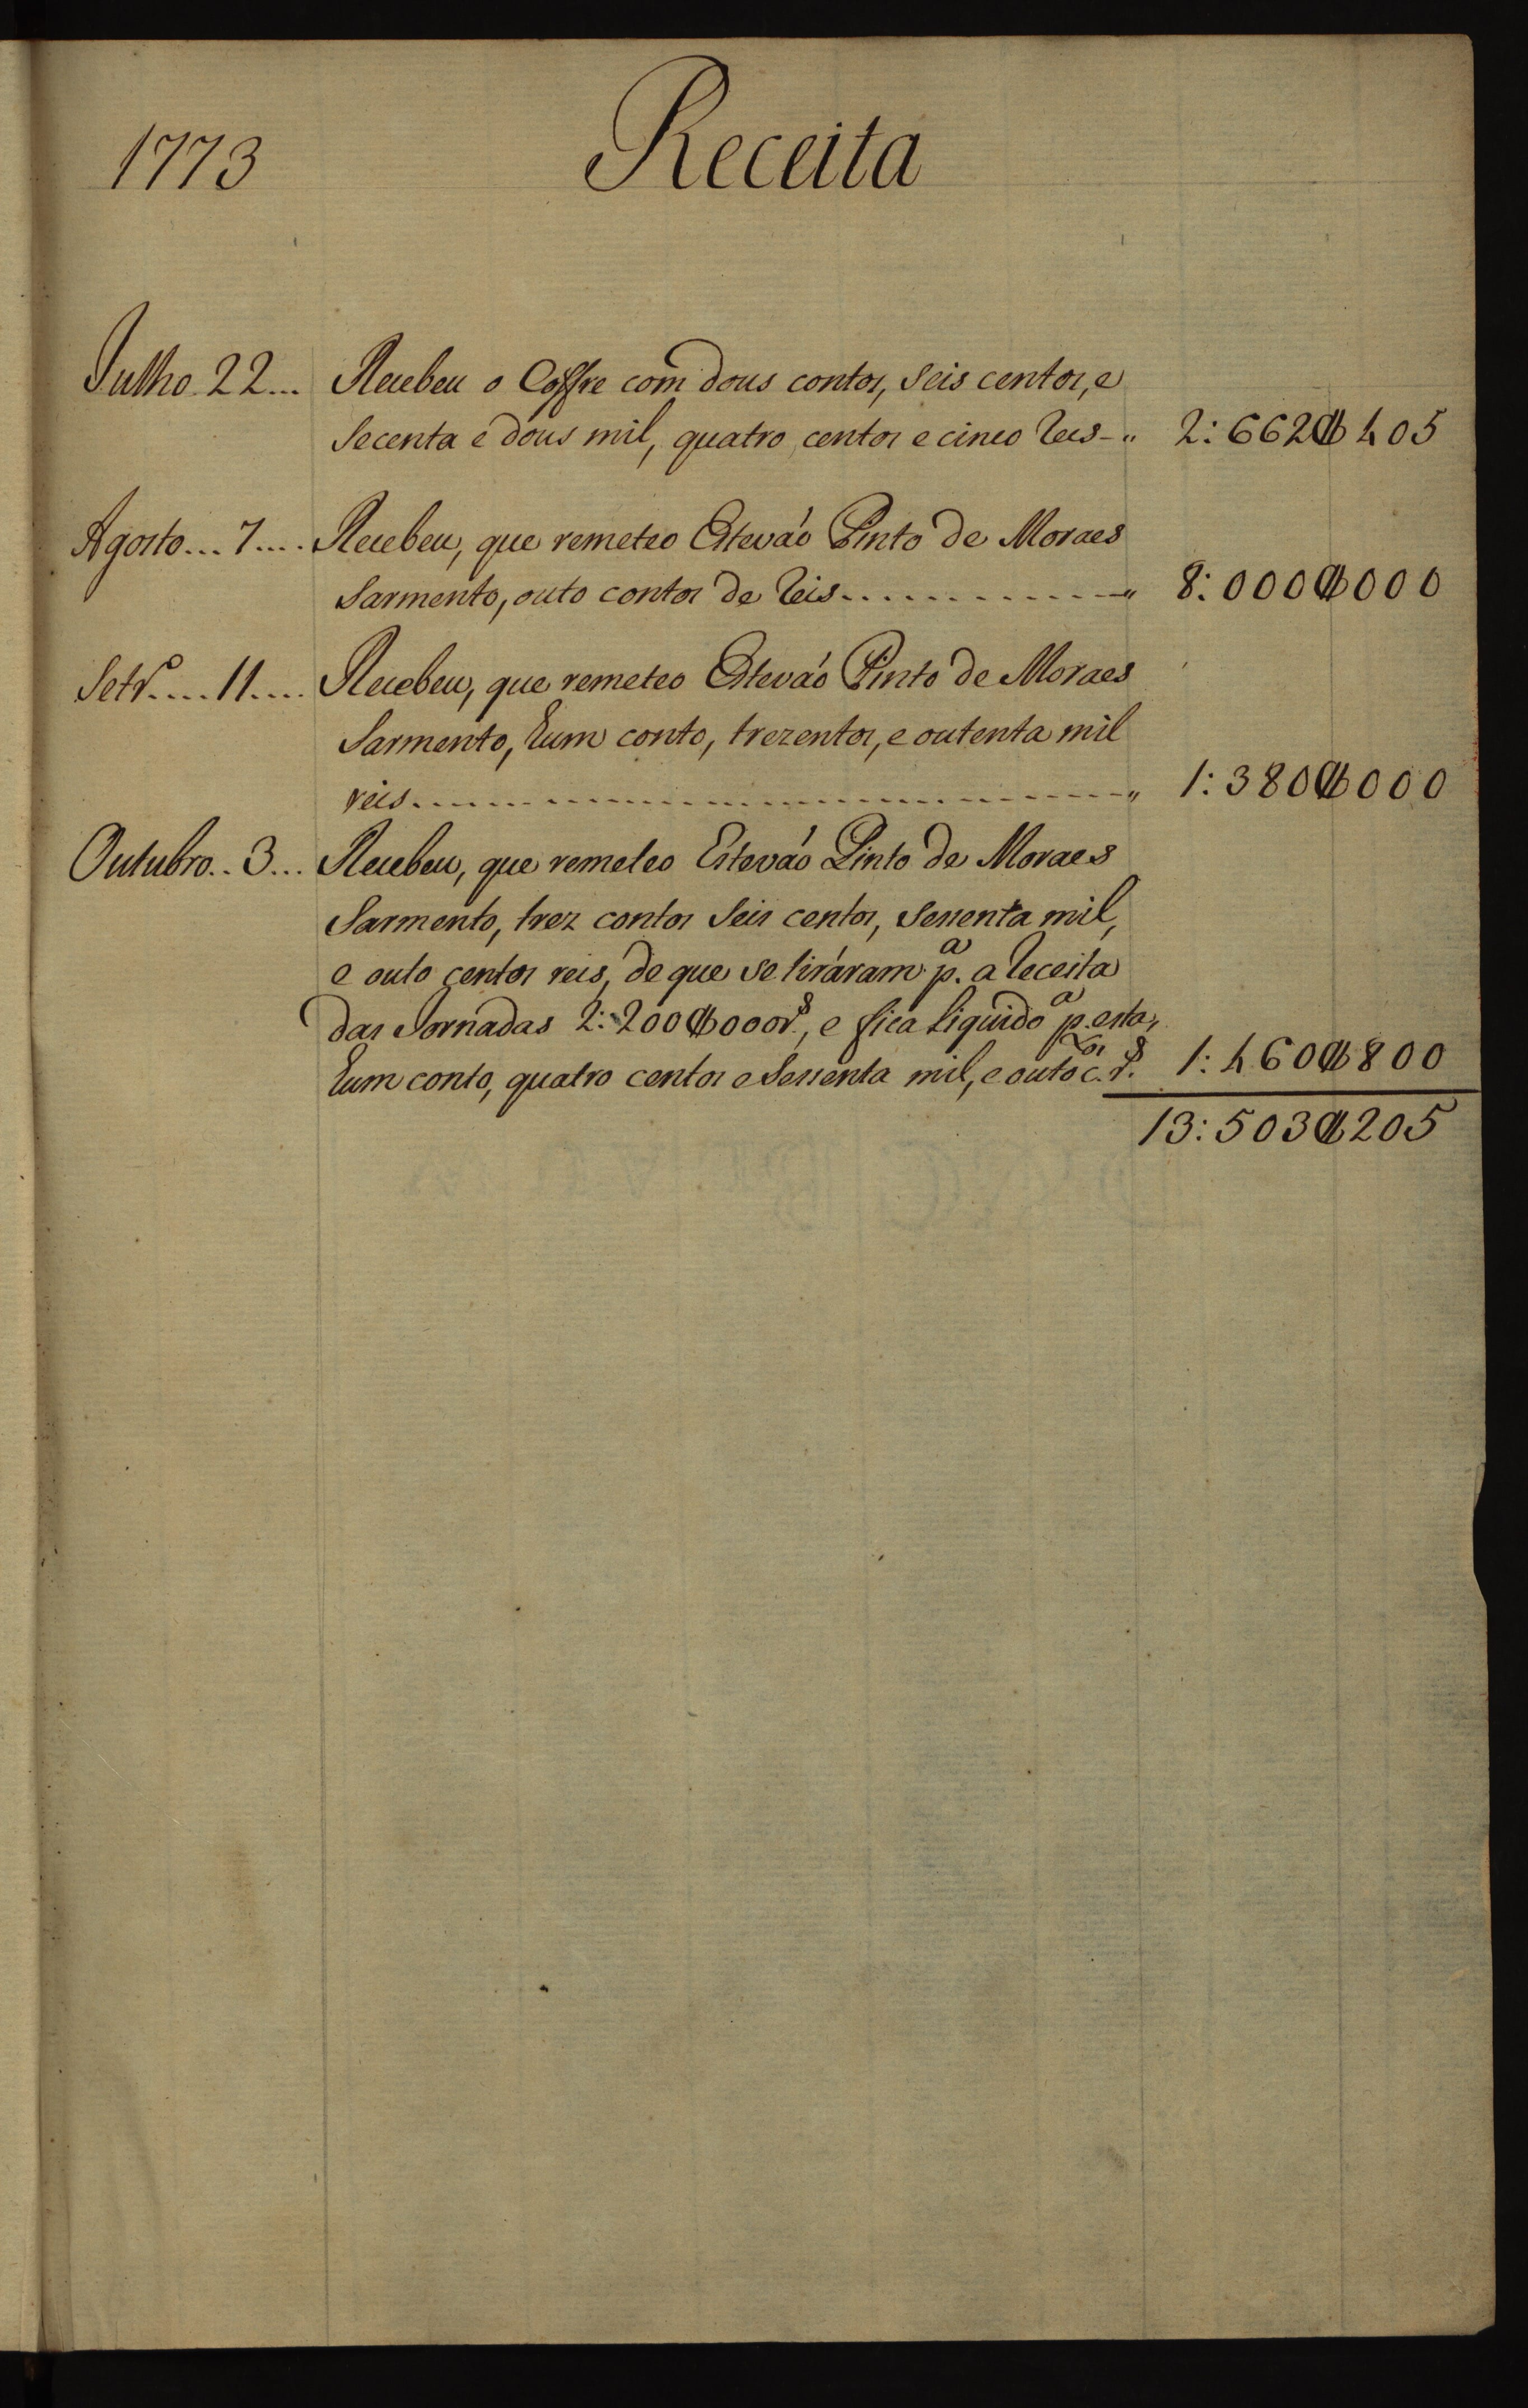 1773 Receita
Julho 22... Recebeu o Coffre com dous contos, seis centos, e
secenta e dous mil, quatro centos e cinco Reis-„ 2:662$405
Agosto...7.... Recebeu, que remeteo Estevaó Pinto de Moraes
Sarmento, outo contos de Reis.............„ 8:000$000
Setr.º....11.... Recebeu, que remeteo Estevaó Pinto de Moraes
Sarmento, hum conto, trezentos, e outenta mil
reis..............................„ 1:380$000
Outubro..3... Recebeu, que remeteo Estevaó Pinto de Moraes
Sarmento, trez contos seis centos, sessenta mil,
e outo centos reis, de que se tiráram p.ª a Receita
das Jornadas 2:200$000r.s, e fica liquido p.ª esta,
hum conto, quatro centos e sessenta mil, e outo c.tos r.s 1:460$800
13:503$205